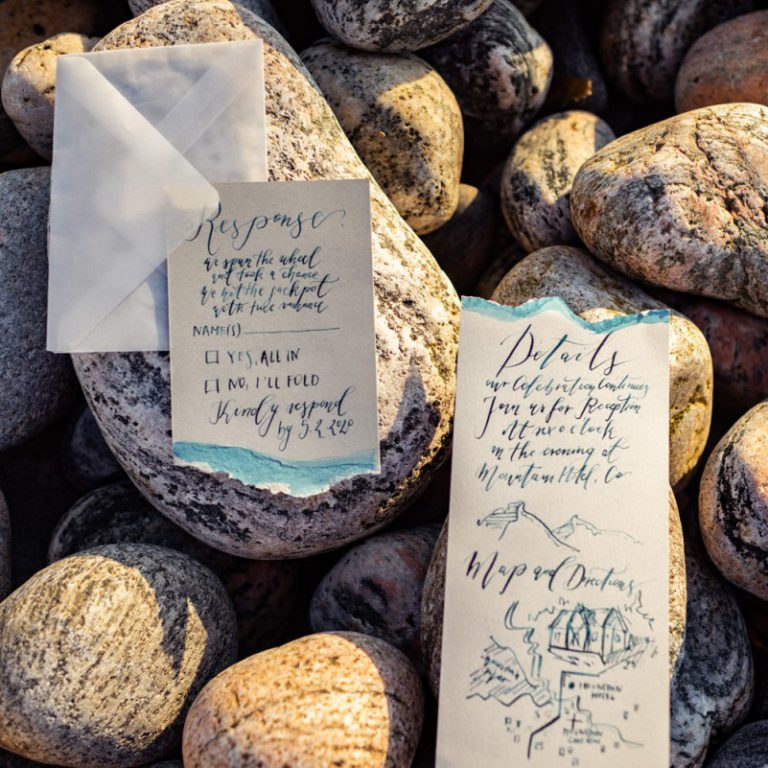 Response
we spun the wheel
and took a chance
we hit the jackpot
with true romance
NAME(S)
YES, ALL IN
NO, I'LL FOLD
Kindly respond
by 5.2.2020
Details
our Celebration Continues
Join us for Reception
At six o clock
in the evening at
Mountain Hotel, Co
Map and Directions
MOUNTAIN
HOTEL
MOUNTAIN